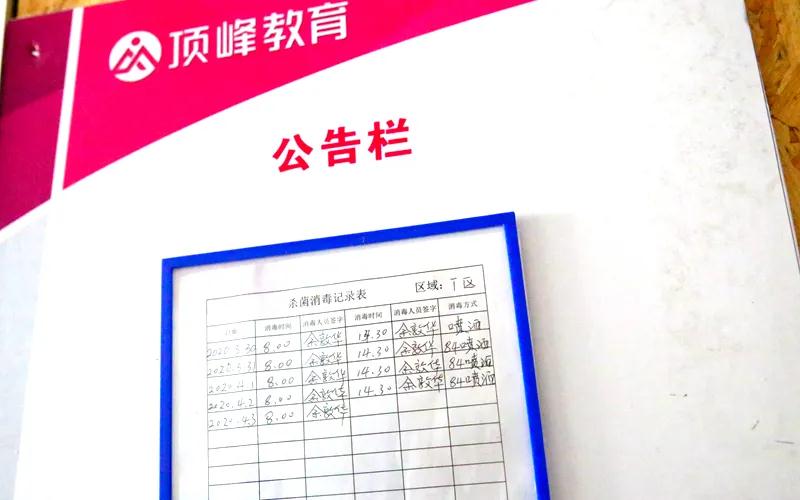 顶峰教育
公告栏
杀菌消毒记录表 区域：丅区
日期 消毒时间 消毒人员签字 消毒时间 消毒人员签字 消毒方式
2020.3.30 8.00 余敦华 14.30 余敦华 喷洒
2020.3.31 8.00 余敦华 14.30 余敦华 84喷洒
2020.4.1 8.00 余敦华 14.30 余敦华 84喷洒
2020.4.2 8.00 余敦华 14.30 余敦华 84喷洒
2020.4.3 8.00 余敦华